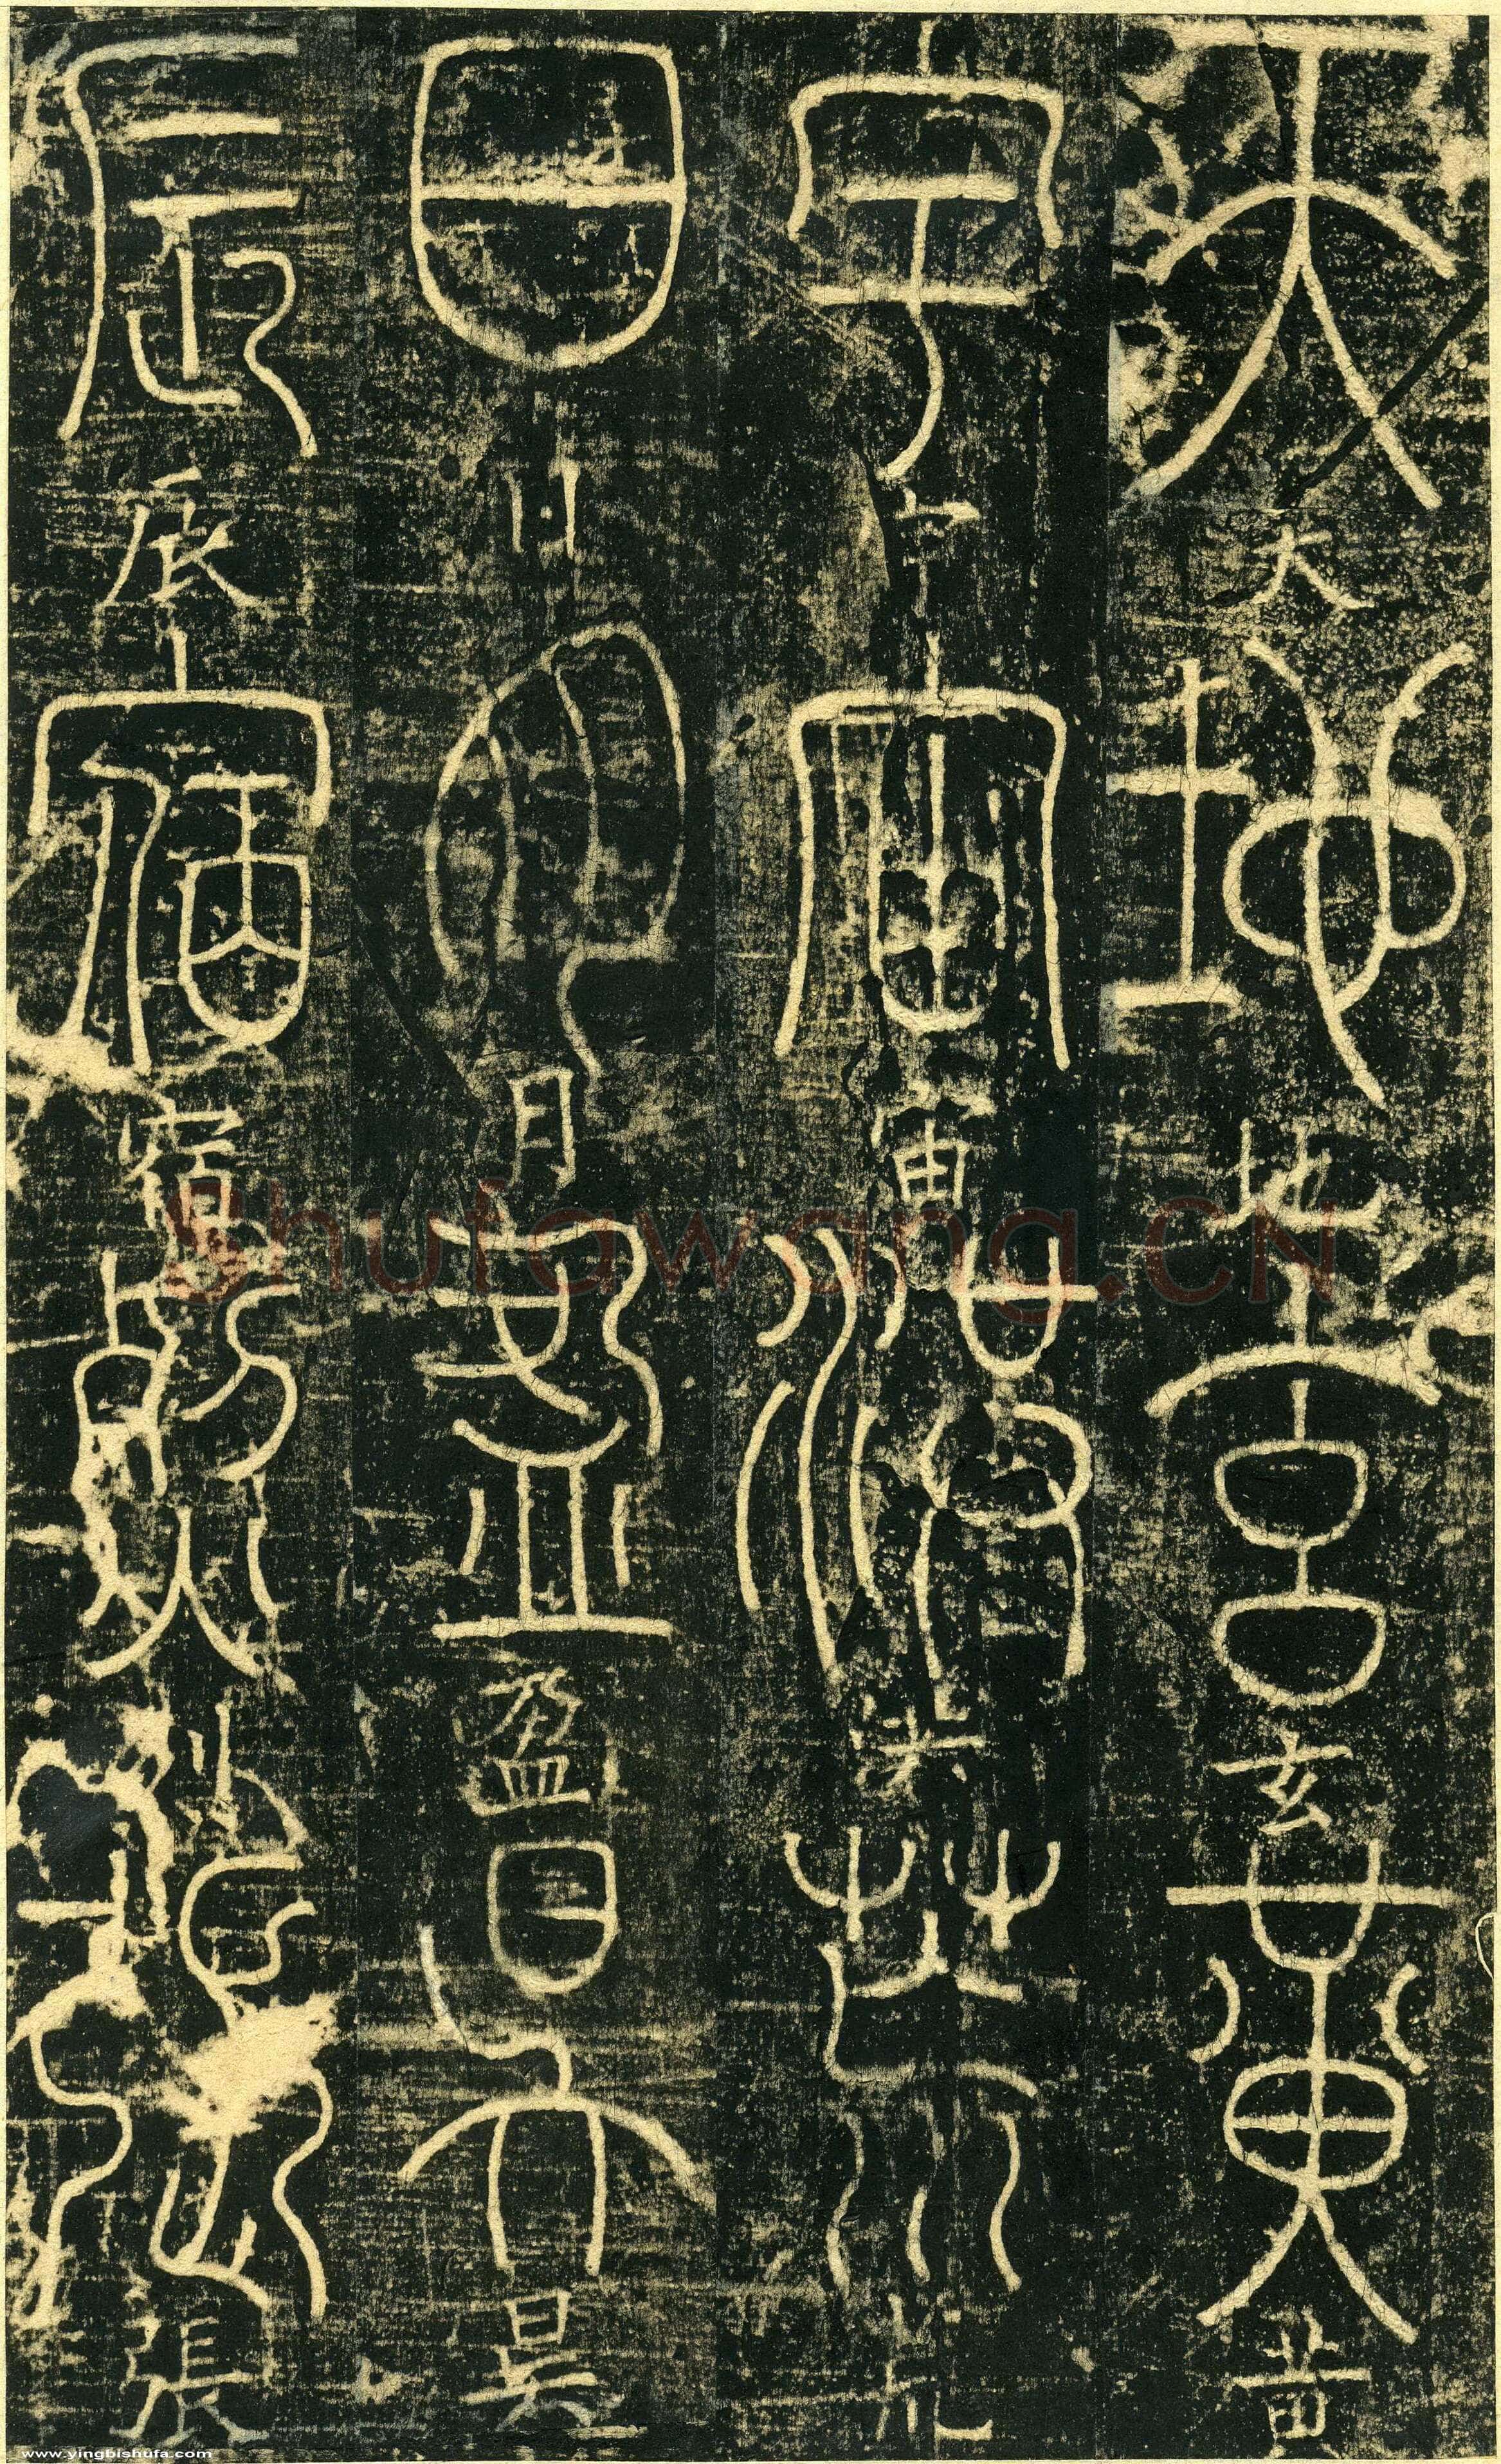 天天地地玄玄黃黃
宇宇宙宙洪洪荒荒
日日月月盈盈昃昃
辰辰宿宿列列張張
Shufawang.CN
www.yingbishufa.com